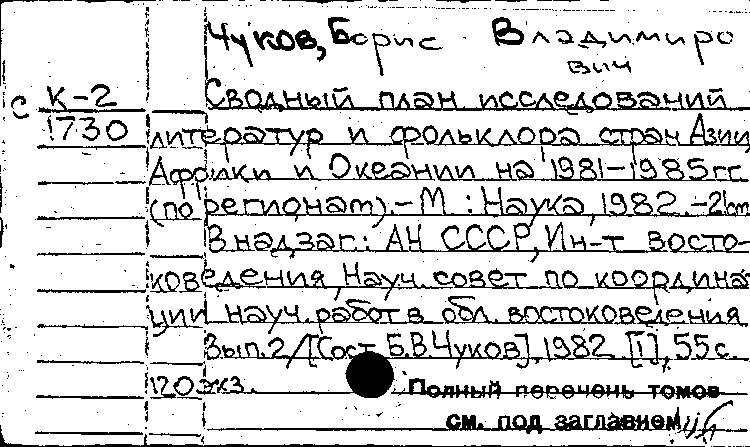 Чуков, Борис Владимиро
вич
С К-2 Сводный план исследований
1730 литератур и фольклора стран Азии,
Африки и Океании на 1981-1985 гг.
(по регионам).- М.: Наука, 1982.-21 см
В надзаг.: АН СССР, Ин-т восто-
коведения, Науч. совет по координа
ции науч. работ в обл. востоковедения.
Вып. 2 / [Сост. Б.В. Чуков], 1982. [1], 55 с.
120 экз. Полный перечень томов
см. под заглавием